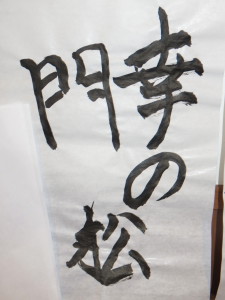 幸の松
門